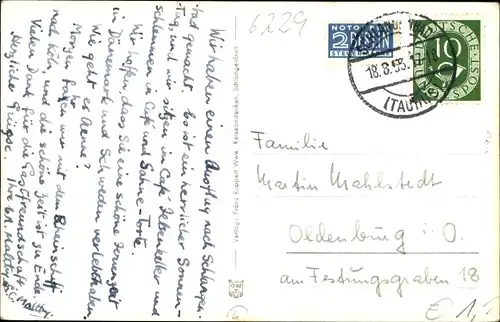 6229
NOTOPFER
2 BERLIN
STEUERMARKE
18.8.53.-17
(TAUNUS)
DEUTSCHE POST
10
Wir haben einen Ausflug nach Schlangen-
bad gemacht. Es ist ein herrlicher Sonnen-
Tag, und wir sitzen im Café Rebenkeller und
schlemmen in Café und Sahne-Torte.
Wir hoffen, dass Sie eine schöne Ferienzeit
in Dänemark und Schweden verlebt haben.
Wie geht es Aenne?
Morgen fahren wir mit dem Rheinschiff
nach Köln, und die schöne Zeit ist zu Ende
Vielen Dank für die Gastfreundschaft.
Herzliche Grüsse. Ihre
Verlag: Franz Ruppert Wwe. Reiseandenken, Schlangenbad.
Familie
Martin Mahlstedt
Oldenburg i. O.
am Festungsgraben 18
€ 1,-